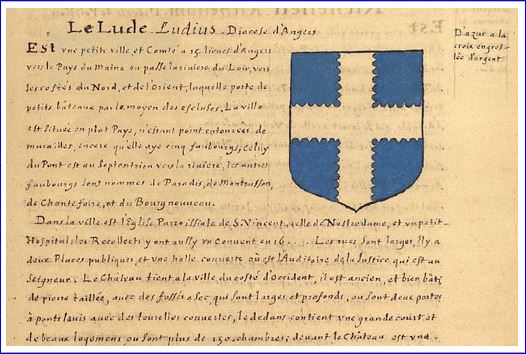 Le Lude Ludius Diocese d'Angers
D'azur a la
croix engres-
lée d'argent
Est vne petit ville et Comté a 15. lieues d'Angers
vers le Pays du Maine ou passe la riviere du Loir, vers
les costés du Nord, et de l'Orient, laquelle porte de
petits bateaux par le moyen des escluses. La ville
est située en plat Pays, n'estant point entourées de
murailles, encore qu'elle aye cinq fauxbourgs; Celuy
du Pont est au Septentrion vers la riviere, les autres
fauxbourgs sont nommés de Paradis, de Montrusson,
de Chantefoire, et du Bourgnouveau.
Dans la ville est l'Eglise Paroissialle de S. Vincent, celle de Nostredame, et vn petit
Hospital; les Recollects y ont aussy vn Convent en 16... Les rues sont larges, Il y a
deux Places publiques, et vne halle couverte où est l'Auditoire de la Justice qui est au
Seigneur. Le Château tient a la ville du costé d'Occident, il est ancien, et bien bâti
de pierre taillée, avec des fossés a sec, qui sont larges et profonds, ou sont deux portes
à ponts levis avec des tourelles couvertes, le dedans contient vne grande court et
de beaux logemens ou sont plus de 150 chambres; devant le Château est vne